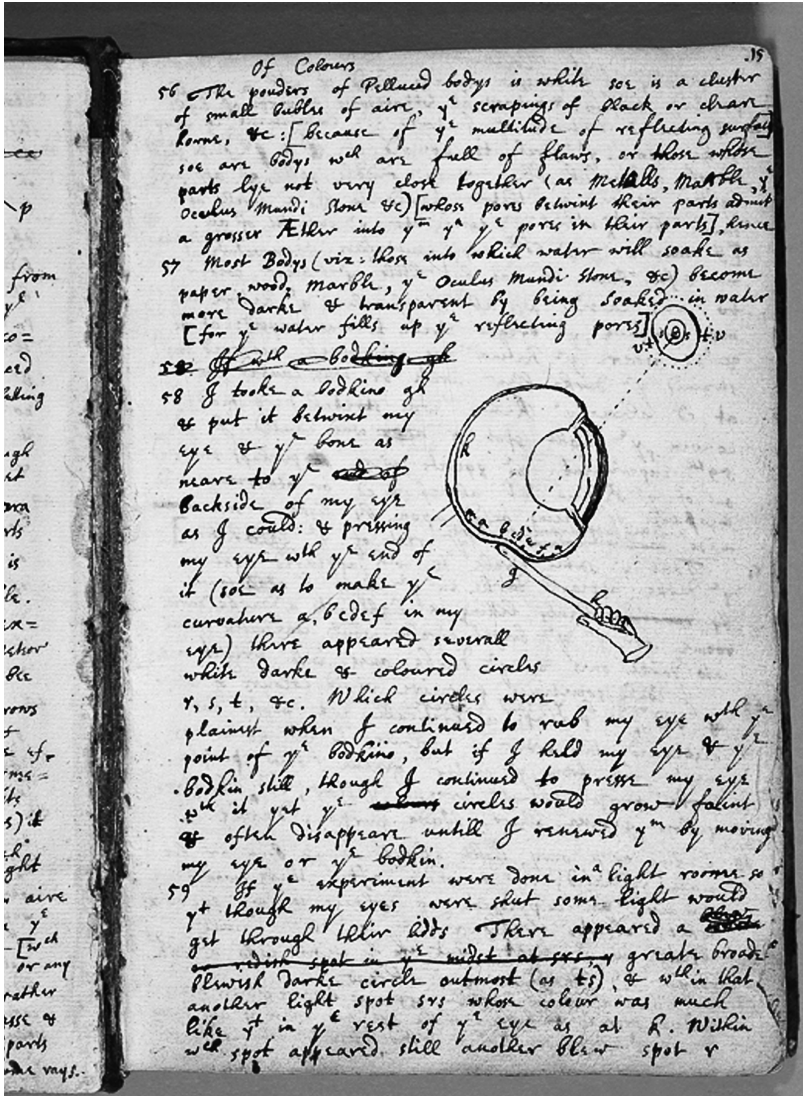 15
Of Colours
56 The pouders of Pellucid bodys is white soe is a cluster
of small bubles of aire, yᵉ scrapings of black or cleare
horne, &c: [because of yᵉ multitude of reflecting surfaces]
soe are bodys wᶜʰ are full of flaws, or those whose
parts lye not very close together (as Metalls, Marble, yᵉ
Oculus Mundi Stone &c) [whose pores betwixt their parts admit
a grosser Æther into yᵐ yⁿ yᵉ pores in their parts], hence
57 Most Bodys (viz: those into which water will soake as
paper, wood, marble, yᵉ Oculus Mundi Stone, &c) become
more darke & transparent by being soaked in water
[for yᵉ water fills up yᵉ reflecting pores]
58 If wᵗʰ a bodkine gh
58 I tooke a bodkine gh
& put it betwixt my
eye & yᵉ bone as
neare to yᵉ
backside of my eye
as I could: & pressing
my eye wᵗʰ yᵉ end of
it (soe as to make yᵉ
curvature a, bcdef in my
eye) there appeared severall
white darke & coloured circles
r, s, t, &c. Which circles were
plainest when I continued to rub my eye wᵗʰ yᵉ
point of yᵉ bodkine, but if I held my eye & yᵉ
bodkin still, though I continued to presse my eye
wᵗʰ it yet yᵉ circles would grow faint
& often disappeare untill I renewed yᵐ by moving
my eye or yᵉ bodkin.
59 If yᵉ experiment were done in a light roome so
yᵗ though my eyes were shut some light would
get through their lidds There appeared a
or redish spot in yᵉ midst at srs, greate broade
blewish darke circle outmost (as ts), & wᵗʰin that
another light spot srs whose colour was much
like yᵗ in yᵉ rest of yᵉ eye as at k. Within
wᶜʰ spot appeared still another blew spot r
p
from
yᵉ
co=
is
x=
bee
rows
me=
s) it
ght
aire
yᵉ
[wᶜʰ
or any
rather
&
parts
rays.
k
a b c d e f
g
h
v t s r s t v